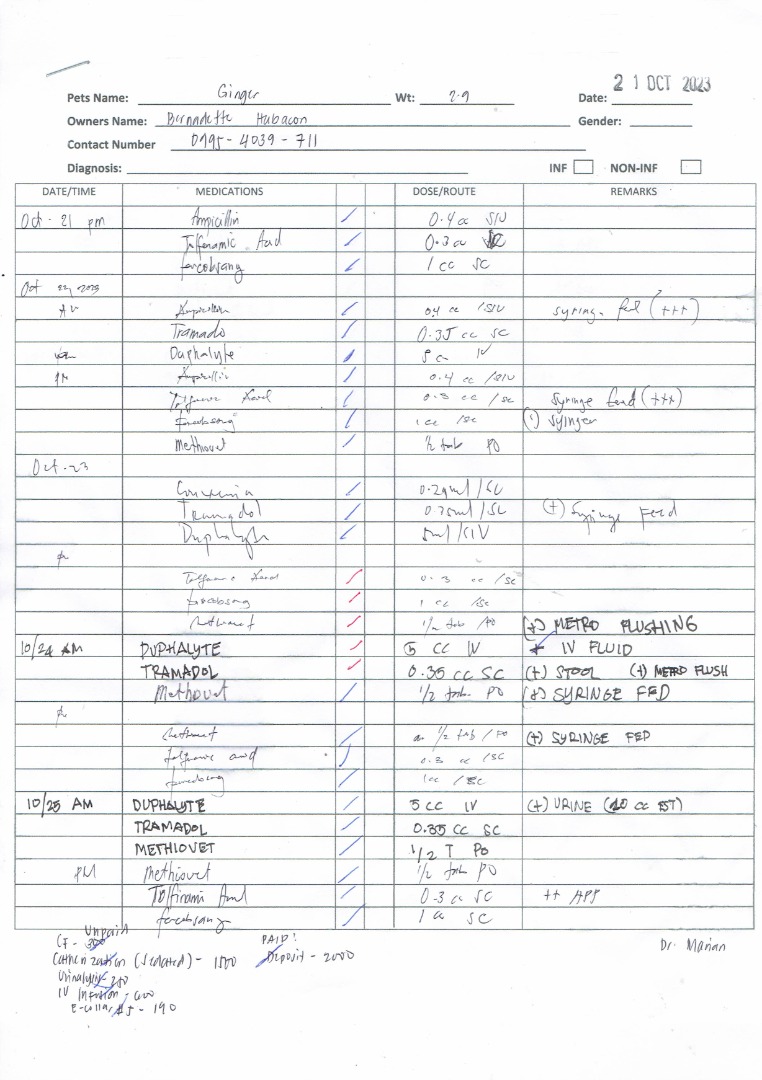 21 OCT 2023
Pets Name: Ginger Wt: 2.9 Date:
Owners Name: Bernadette Habacon Gender:
Contact Number 0995-4039-711
Diagnosis: INF NON-INF
DATE/TIME MEDICATIONS DOSE/ROUTE REMARKS
Oct. 21 pm Ampicillin 0.4 cc SIV
Tolfenamic Acid 0.3 cc SC
furcobsang 1 cc SC
Oct 22, 2023
AM Ampicillin 0.4 cc /SIV syringe feed (+++)
Tramado 0.35 cc SC
Duphalyte 5 cc IV
PM Ampicillin 0.4 cc /SIV
0.3 cc /SC Syringe feed (+++)
1 cc /SC
Methiovet 1/2 tab PO
Oct-23
Convenia 0.29ml/SC
Tramadol 0.35ml/SC (+) Syringe Feed
Duphalyte 5ml/SIV
0.3 cc /SC
furcobsang 1 cc /SC
1/2 tab /PO (+) METRO FLUSHING
10/24 AM DUPHALYTE 5 CC IV IV FLUID
TRAMADOL 0.35 CC SC (+) STOOL (+) METRO FLUSH
Methiovet 1/2 tab PO (+) SYRINGE FED
1/2 tab / PO (+) SYRINGE FED
0.3 cc /SC
1cc /SC
10/25 AM DUPHALYTE 5 CC IV (+) URINE (10 cc EST)
TRAMADOL 0.35 CC SC
METHIOVET 1/2 T PO
PM Methiovet 1/2 tab PO
0.3 cc SC ++ APP
furcobsang 1 cc SC
Unpaid
CF - 300 PAID:
(Sedated) - 1500 Deposit - 2000
Urinalysis - 250
IV Infusion - 600
E-collar - 190
Dr. Marian